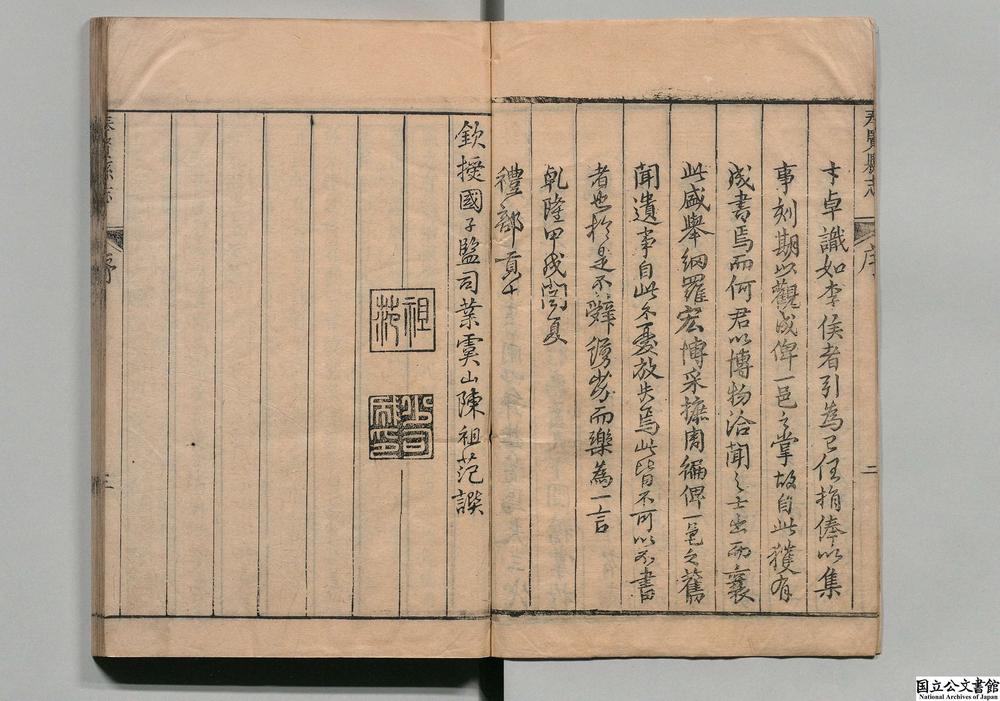 奉賢縣志
序
二
才卓識如李侯者引為己任捐俸以集
事刻期以觀成俾一邑之掌故自此獲有
成書焉而何君以博物洽聞之士出而襄
此盛舉網羅宏博采摭周徧俾一邑之舊
聞遺事自此不憂放失焉此皆不可以不書
者也於是不辭譾劣而樂為一言
乾隆甲戌閏夏
禮部貢士
欽授國子監司業虞山陳祖范譔
祖范
奉賢縣志
序
三
国立公文書館
National Archives of Japan